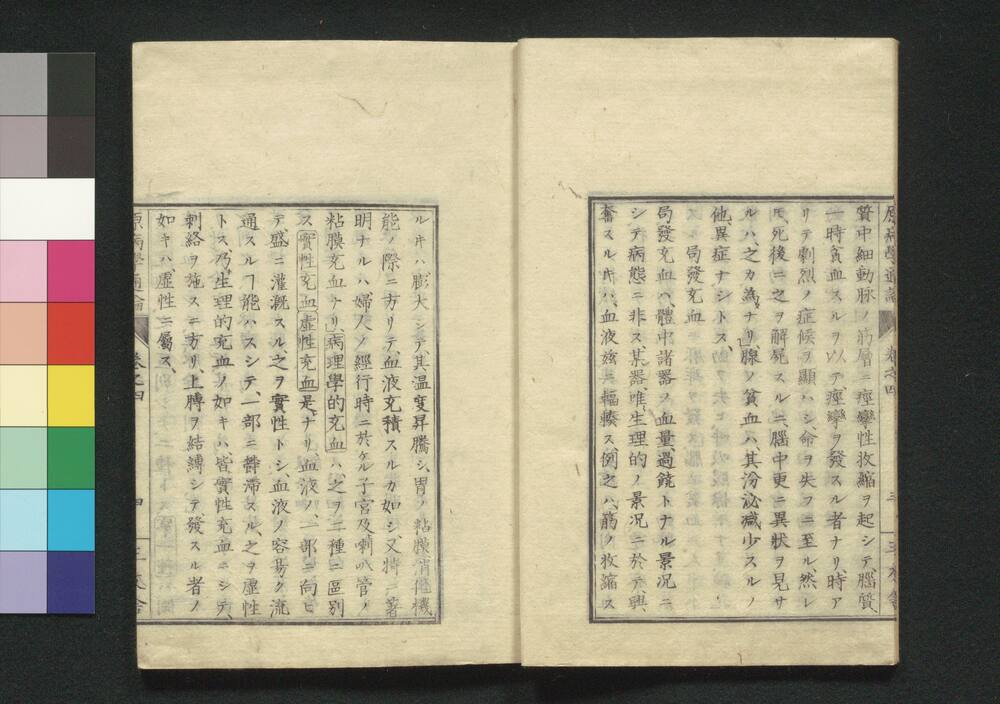 質中細動脉ノ筋層ニ痙攣性收縮ヲ起シテ、腦質
一時貧血スルヲ以テ痙攣ヲ發スル者ナリ、時ア
リテ劇烈ノ症候ヲ顯ハシ、命ヲ失フニ至ル、然レ
𪜈、死後ニ之ヲ解屍スルニ、腦中更ニ異狀ヲ見サ
ルハ、之カ為ナリ、腺ノ貧血ハ、其汾泌減少スルノ
他、異症ナシトス、
局發充血
局發充血ハ、體中諸器ノ血量、過饒トナル景況ニ
シテ病態ニ非ス、某器、唯生理的ノ景況ニ於テ興
奮スル𪜈ハ、血液玆ニ輻輳ス例之ハ、筋ノ收縮ス
ルキハ膨大シテ其温度昇騰シ、胃ノ粘膜消化機
能ノ際ニ方リテ、血液充積スルカ如シ、又特ニ著
明ナルハ婦人ノ經行時ニ於ケル子宮及喇叭管ノ
粘膜充血ナリ、病理學的充血ハ之ヲ二種ニ區別
ス實性充血虛性充血是ナリ、血液ノ、一部ニ向ヒ
テ盛ニ灌漑スル之ヲ實性トシ、血液ノ容易ク流
通スルヿ能ハスシテ、一部ニ欝滯スル、之ヲ虛性
トス、乃生理的充血ノ如キハ、皆實性充血ニシテ、
刺絡ヲ施スニ方リ、上膊ヲ結縛シテ發スル者ノ
如キハ、虛性ニ屬ス、
原病學通論 卷之四 四